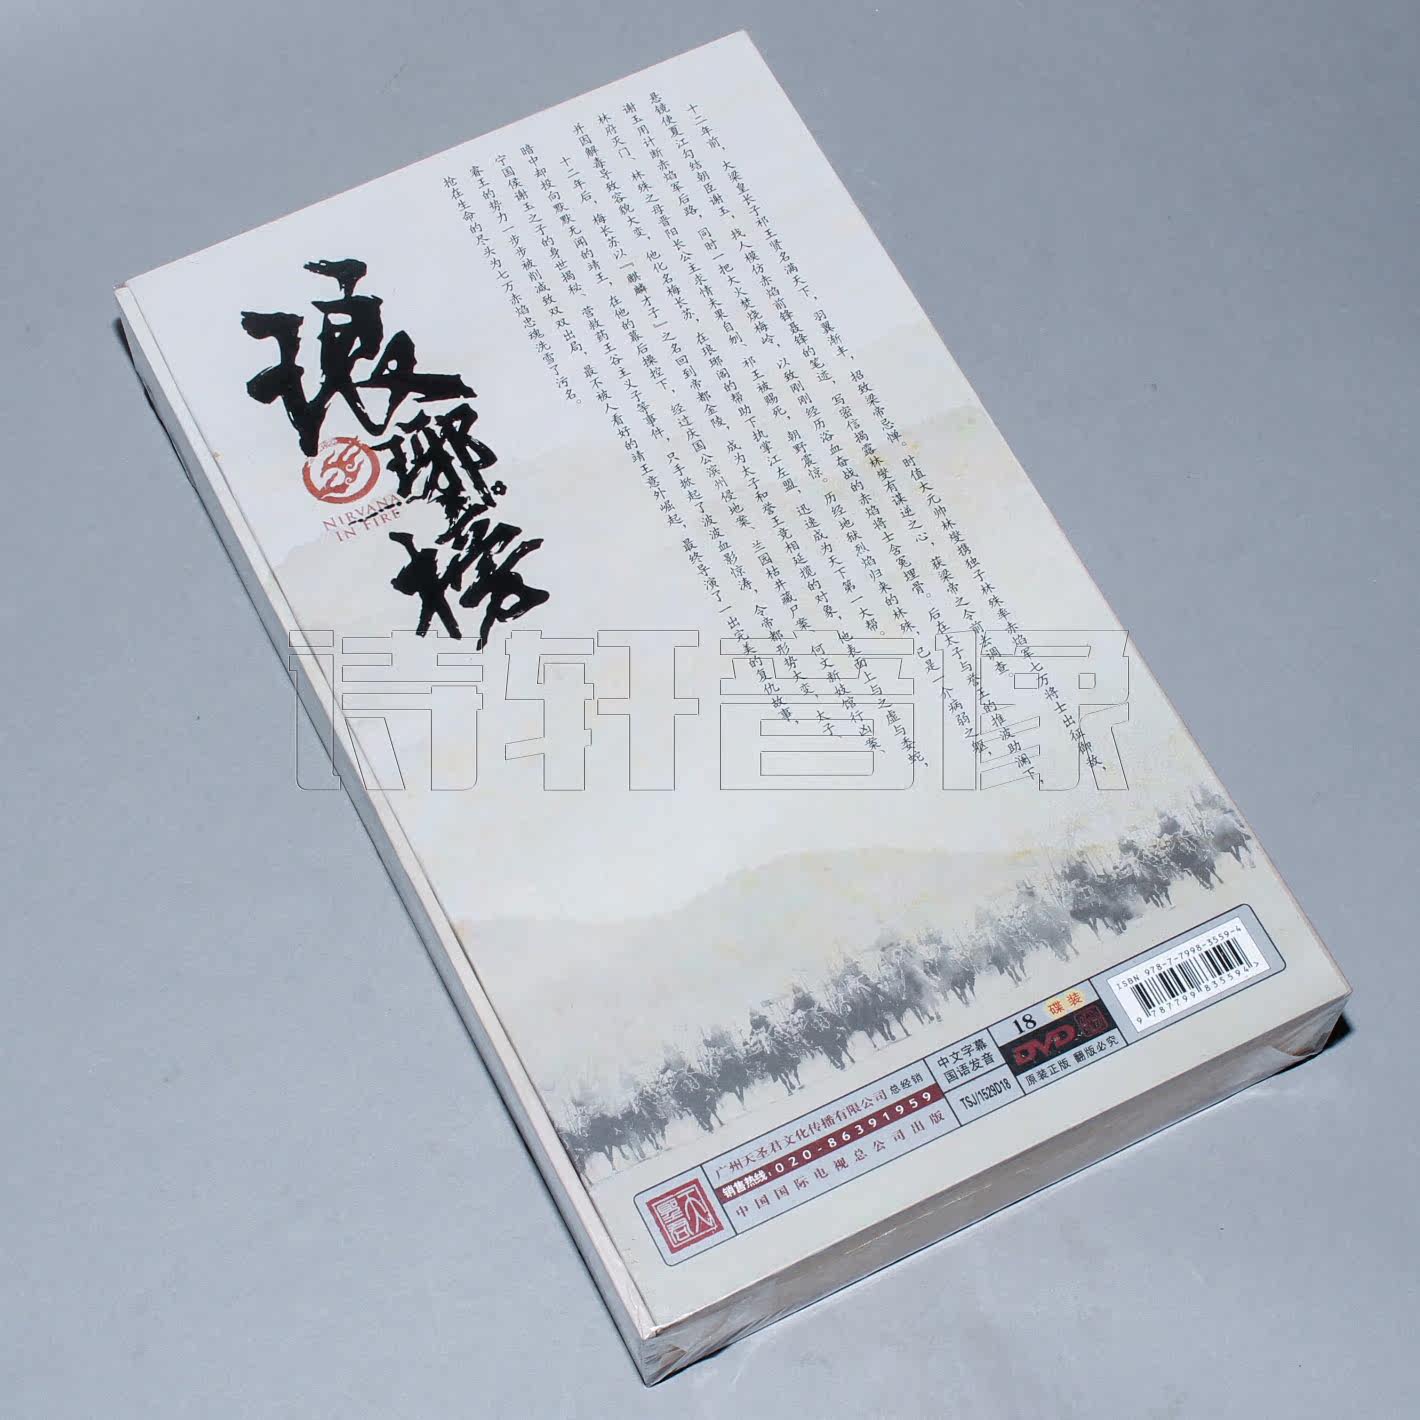 十二年前，大梁皇长子祁王贤名满天下，羽翼渐丰，招致梁帝忌惮。时值大元帅林燮携独子林殊率赤焰军七万将士出征御敌，
悬镜使夏江勾结朝臣谢玉，找人模仿赤焰前锋聂锋的笔迹，写密信揭露林燮有谋逆之心，获梁帝之令前去调查。
谢玉用计断赤焰军后路，同时一把大火焚烧梅岭，以致刚刚经历浴血奋战的赤焰将士含冤埋骨。后在太子与誉王的推波助澜下，
林府灭门、林殊之母晋阳长公主求情未果自刎、祁王被赐死，朝野震惊。历经地狱烈焰归来的林殊，已是一介病弱之躯，
并因解毒导致容貌大变，他化名梅长苏，在琅琊阁的帮助下执掌江左盟，迅速成为天下第一大帮。
十二年后，梅长苏以“麒麟才子”之名回到帝都金陵，成为太子和誉王竞相延揽的对象，他表面上与之虚与委蛇，
暗中却投向默默无闻的靖王，在他的幕后操控下，经过庆国公滨州侵地案、兰园枯井藏尸案、何文新妓馆行凶案、
宁国侯谢玉之子的身世揭秘、营救药王谷主义子等事件，只手掀起了波波血影惊涛，令帝都形势大变，太子、
睿王的势力一步步被削减致双双出局，最不被人看好的靖王意外崛起，最终导演了一出完美的复仇故事，
抢在生命的尽头为七万赤焰忠魂洗雪了污名。
琅琊榜
NIRVANA
IN FIRE
诗轩音像
ISBN 978-7-7998-3559-4
9 787799 835594 >
18 碟装
DVD
原装正版 翻版必究
中文字幕
国语发音
TSJ/1529D18
广州天圣君文化传播有限公司 总经销
销售热线：020-86391959
中国国际电视总公司出版